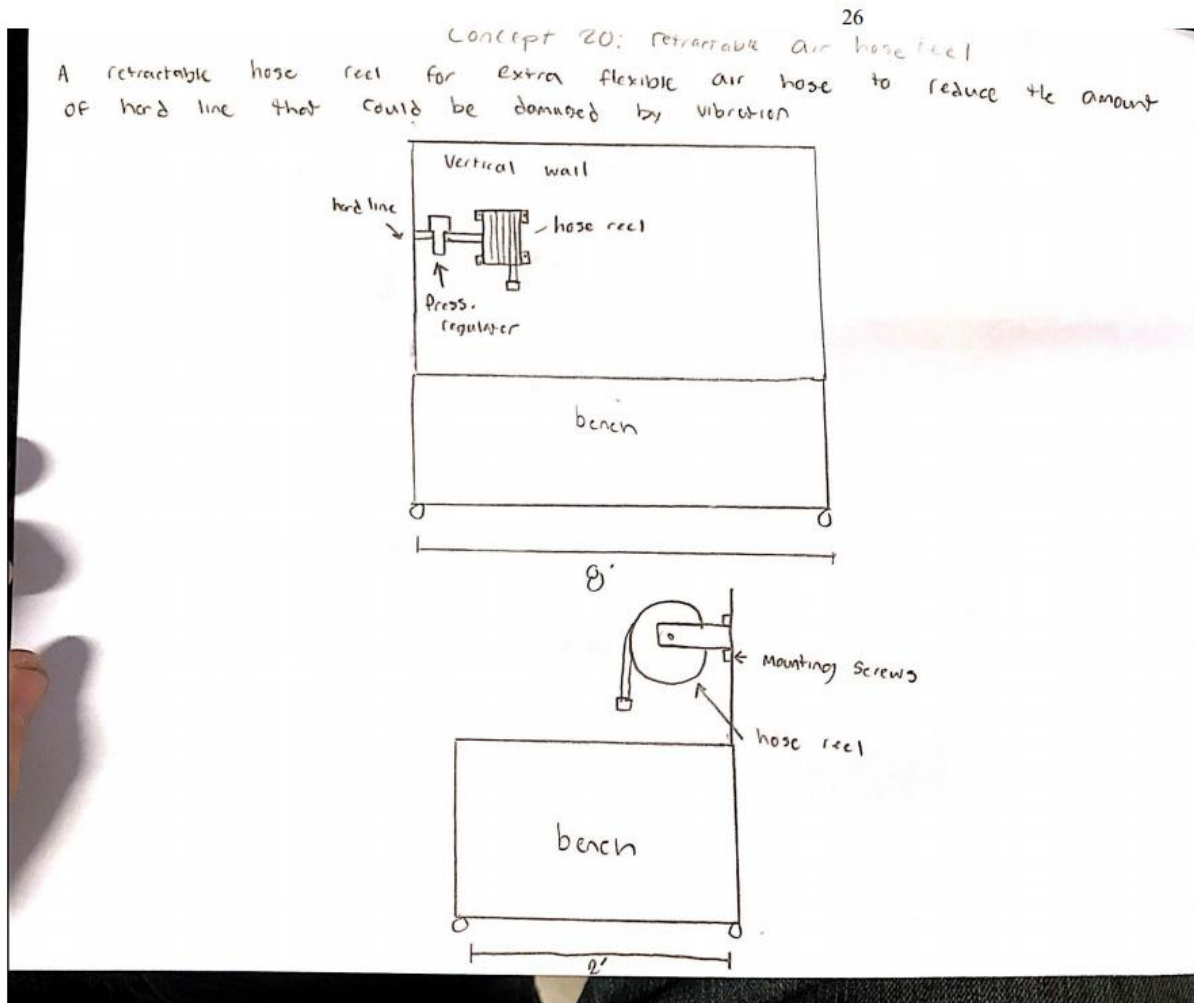 26
Concept 20: retractable air hose reel
A retractable hose reel for extra flexible air hose to reduce the amount
of hard line that could be damaged by vibration
Vertical wall
hard line
hose reel
Press.
regulator
bench
8'
Mounting Screws
hose reel
bench
2'